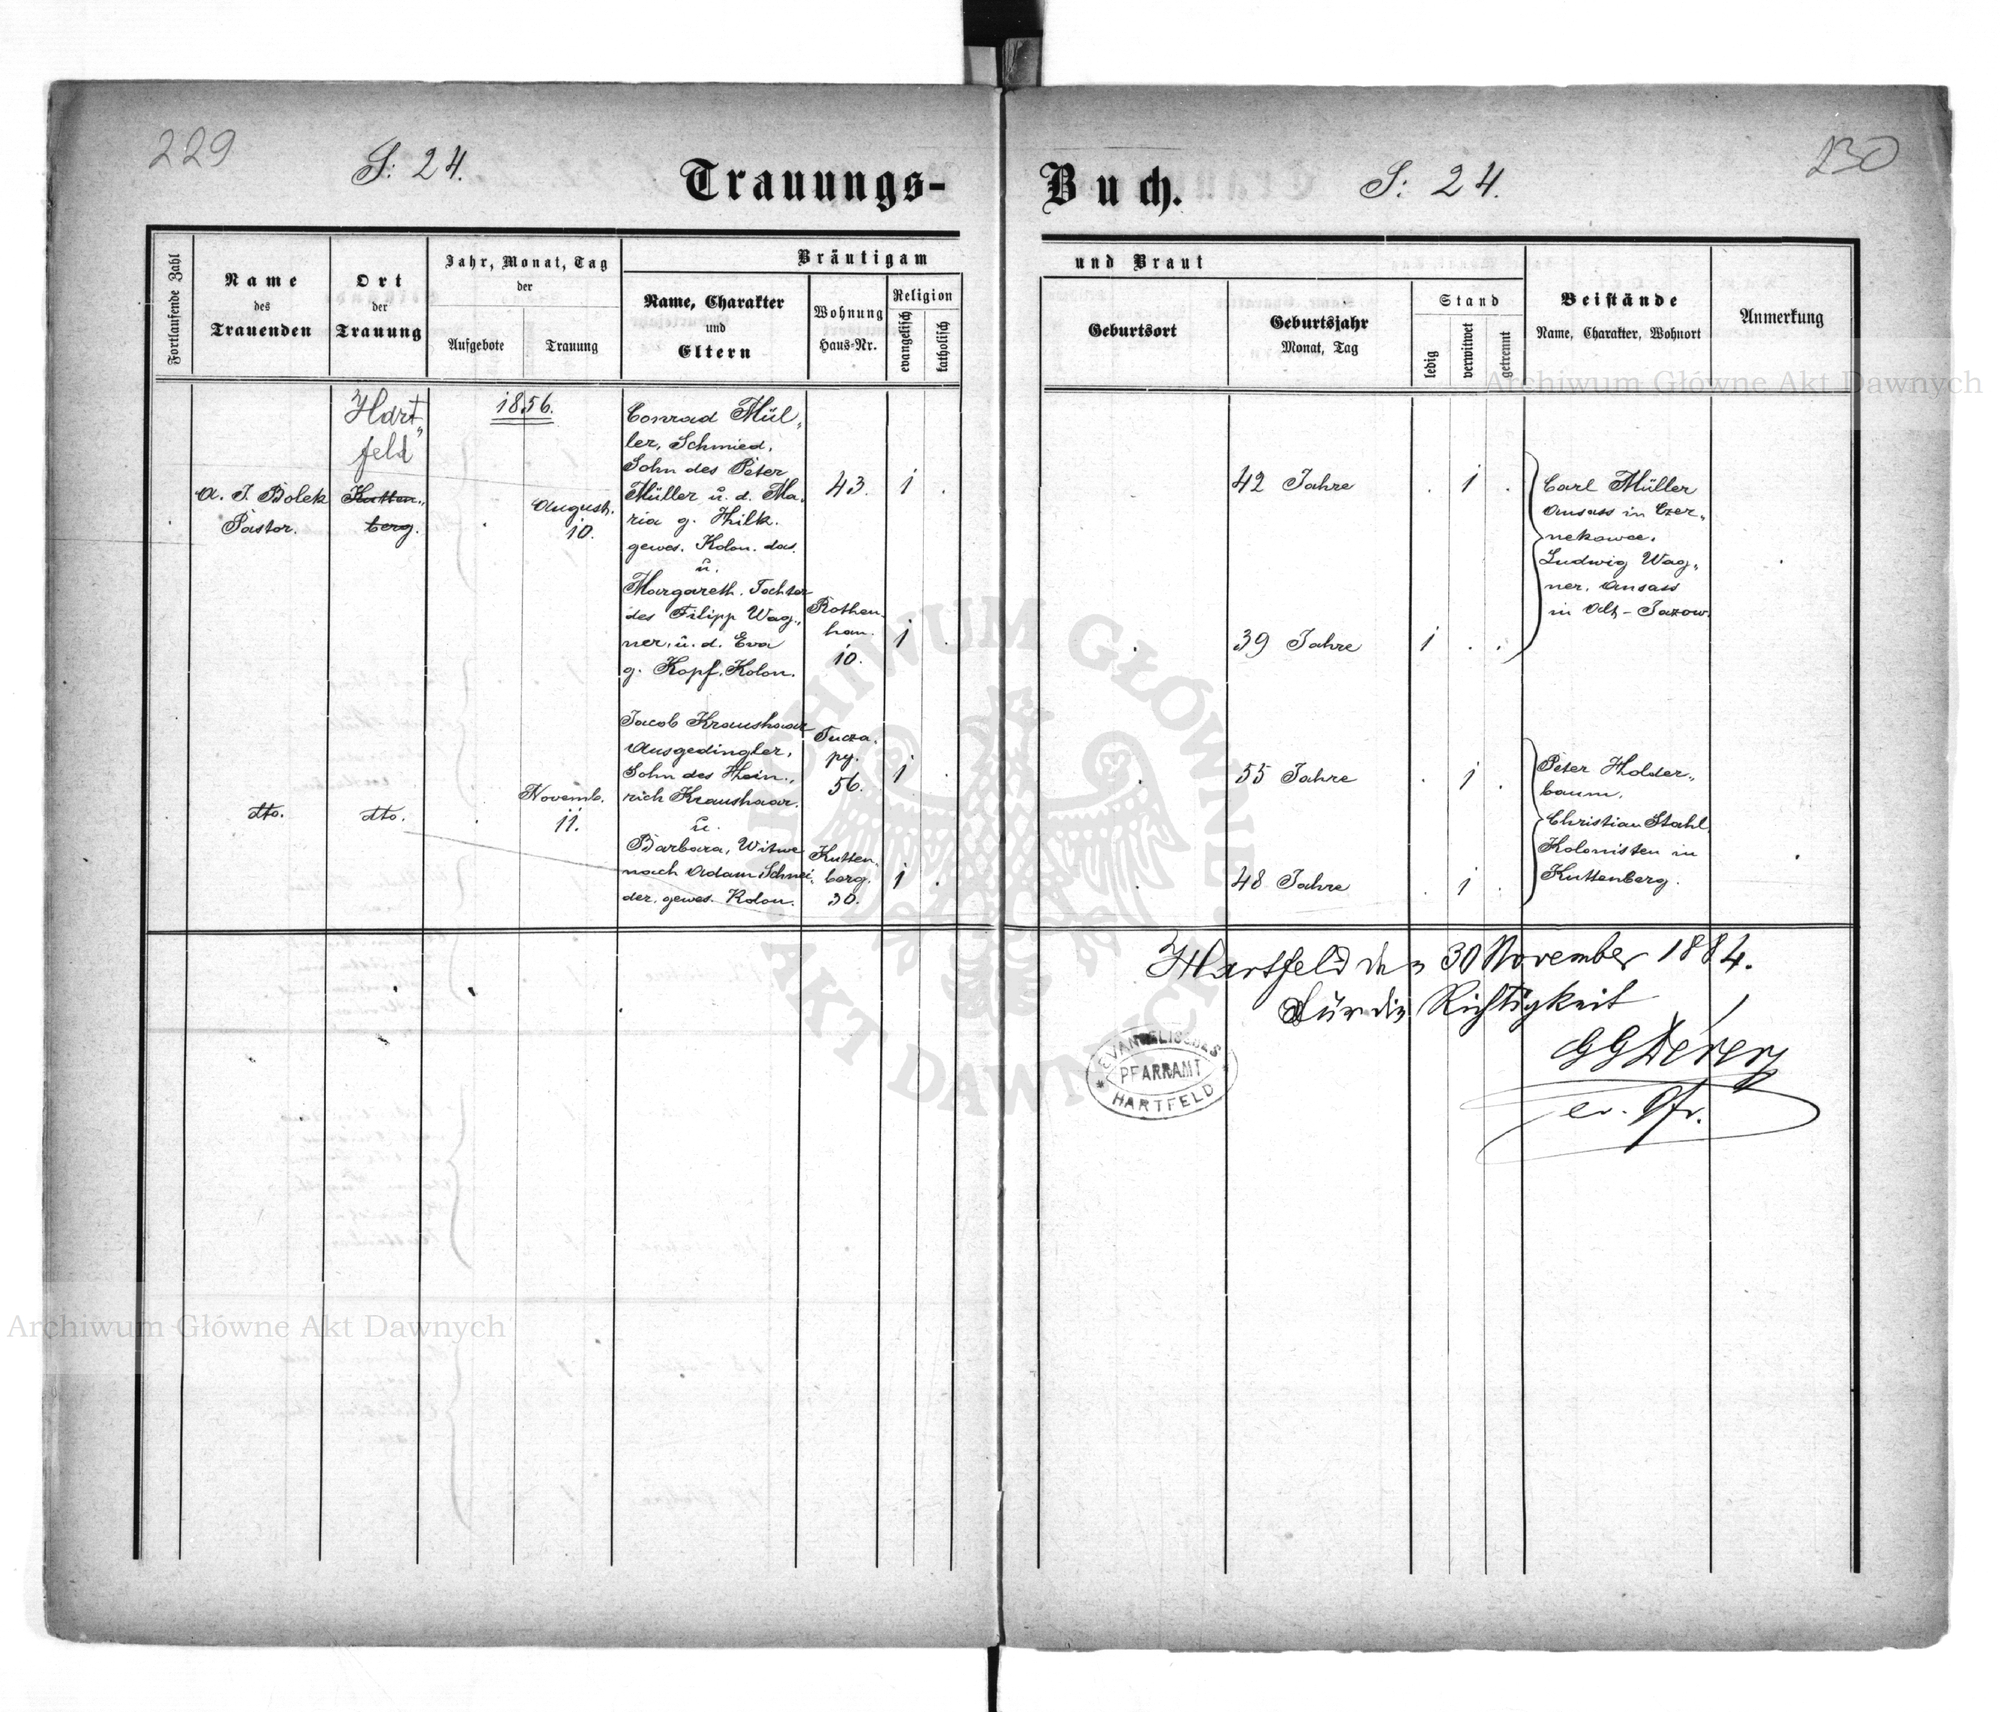 229
S: 24.
Trauungs-
Buch.
S: 24.
230
Fortlaufende Zahl
Name
des
Trauenden
Ort
der
Trauung
Jahr, Monat, Tag
der
Aufgebote
Trauung
Bräutigam
Name, Charakter
und
Eltern
Wohnung
Haus-Nr.
Religion
evangelisch
katholisch
und Braut
Geburtsort
Geburtsjahr
Monat, Tag
Stand
ledig
verwitwet
getrennt
Beistände
Name, Charakter, Wohnort
Anmerkung
A. J. Bolek
Pastor.
Hart„
feld
Kutten„
berg.
1856.
August.
10.
Conrad Mül„
ler, Schmied,
Sohn des Peter
Müller u. d. Ma„
ria g. Hilk.
gewes. Kolon. das.
u.
Margareth. Tochter
des Filipp Wag„
ner, u. d. Eva
g. Kopf, Kolon.
43.
Rothen„
han.
10.
1 .
1 .
.
42 Jahre
39 Jahre
. 1 .
1 . .
Carl Müller
Ansass in Czer„
nekowce.
Ludwig Wag„
ner, Ansass
in Alt-Jazow.
.
dto.
dto.
.
Novemb.
11.
Jacob Kraushaar
Ausgedingler,
Sohn des Hein„
rich Kraushaar.
u.
Barbara, Witwe
nach Adam Schnei„
der, gewes. Kolon.
Tucza„
py.
56.
Kutten„
berg.
30.
1 .
1 .
55 Jahre
48 Jahre
. 1 .
. 1 .
Peter Holder„
baum,
Christian Stahl,
Kolonisten in
Kuttenberg.
.
Hartfeld den 30 November 1884.
Für die Richtigkeit
ev. Pfr.
EVANGELISCHES
PFARRAMT
HARTFELD
Archiwum Główne Akt Dawnych
Archiwum Główne Akt Dawnych
ARCHIWUM GŁÓWNE
AKT DAWNYCH